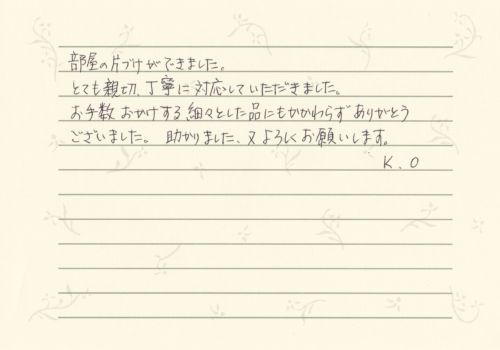 部屋の片づけができました。
とても親切、丁寧に対応していただきました。
お手数おかけする、細々とした品にもかかわらず ありがとう
ございました。 助かりました、又よろしくお願いします。
K.O